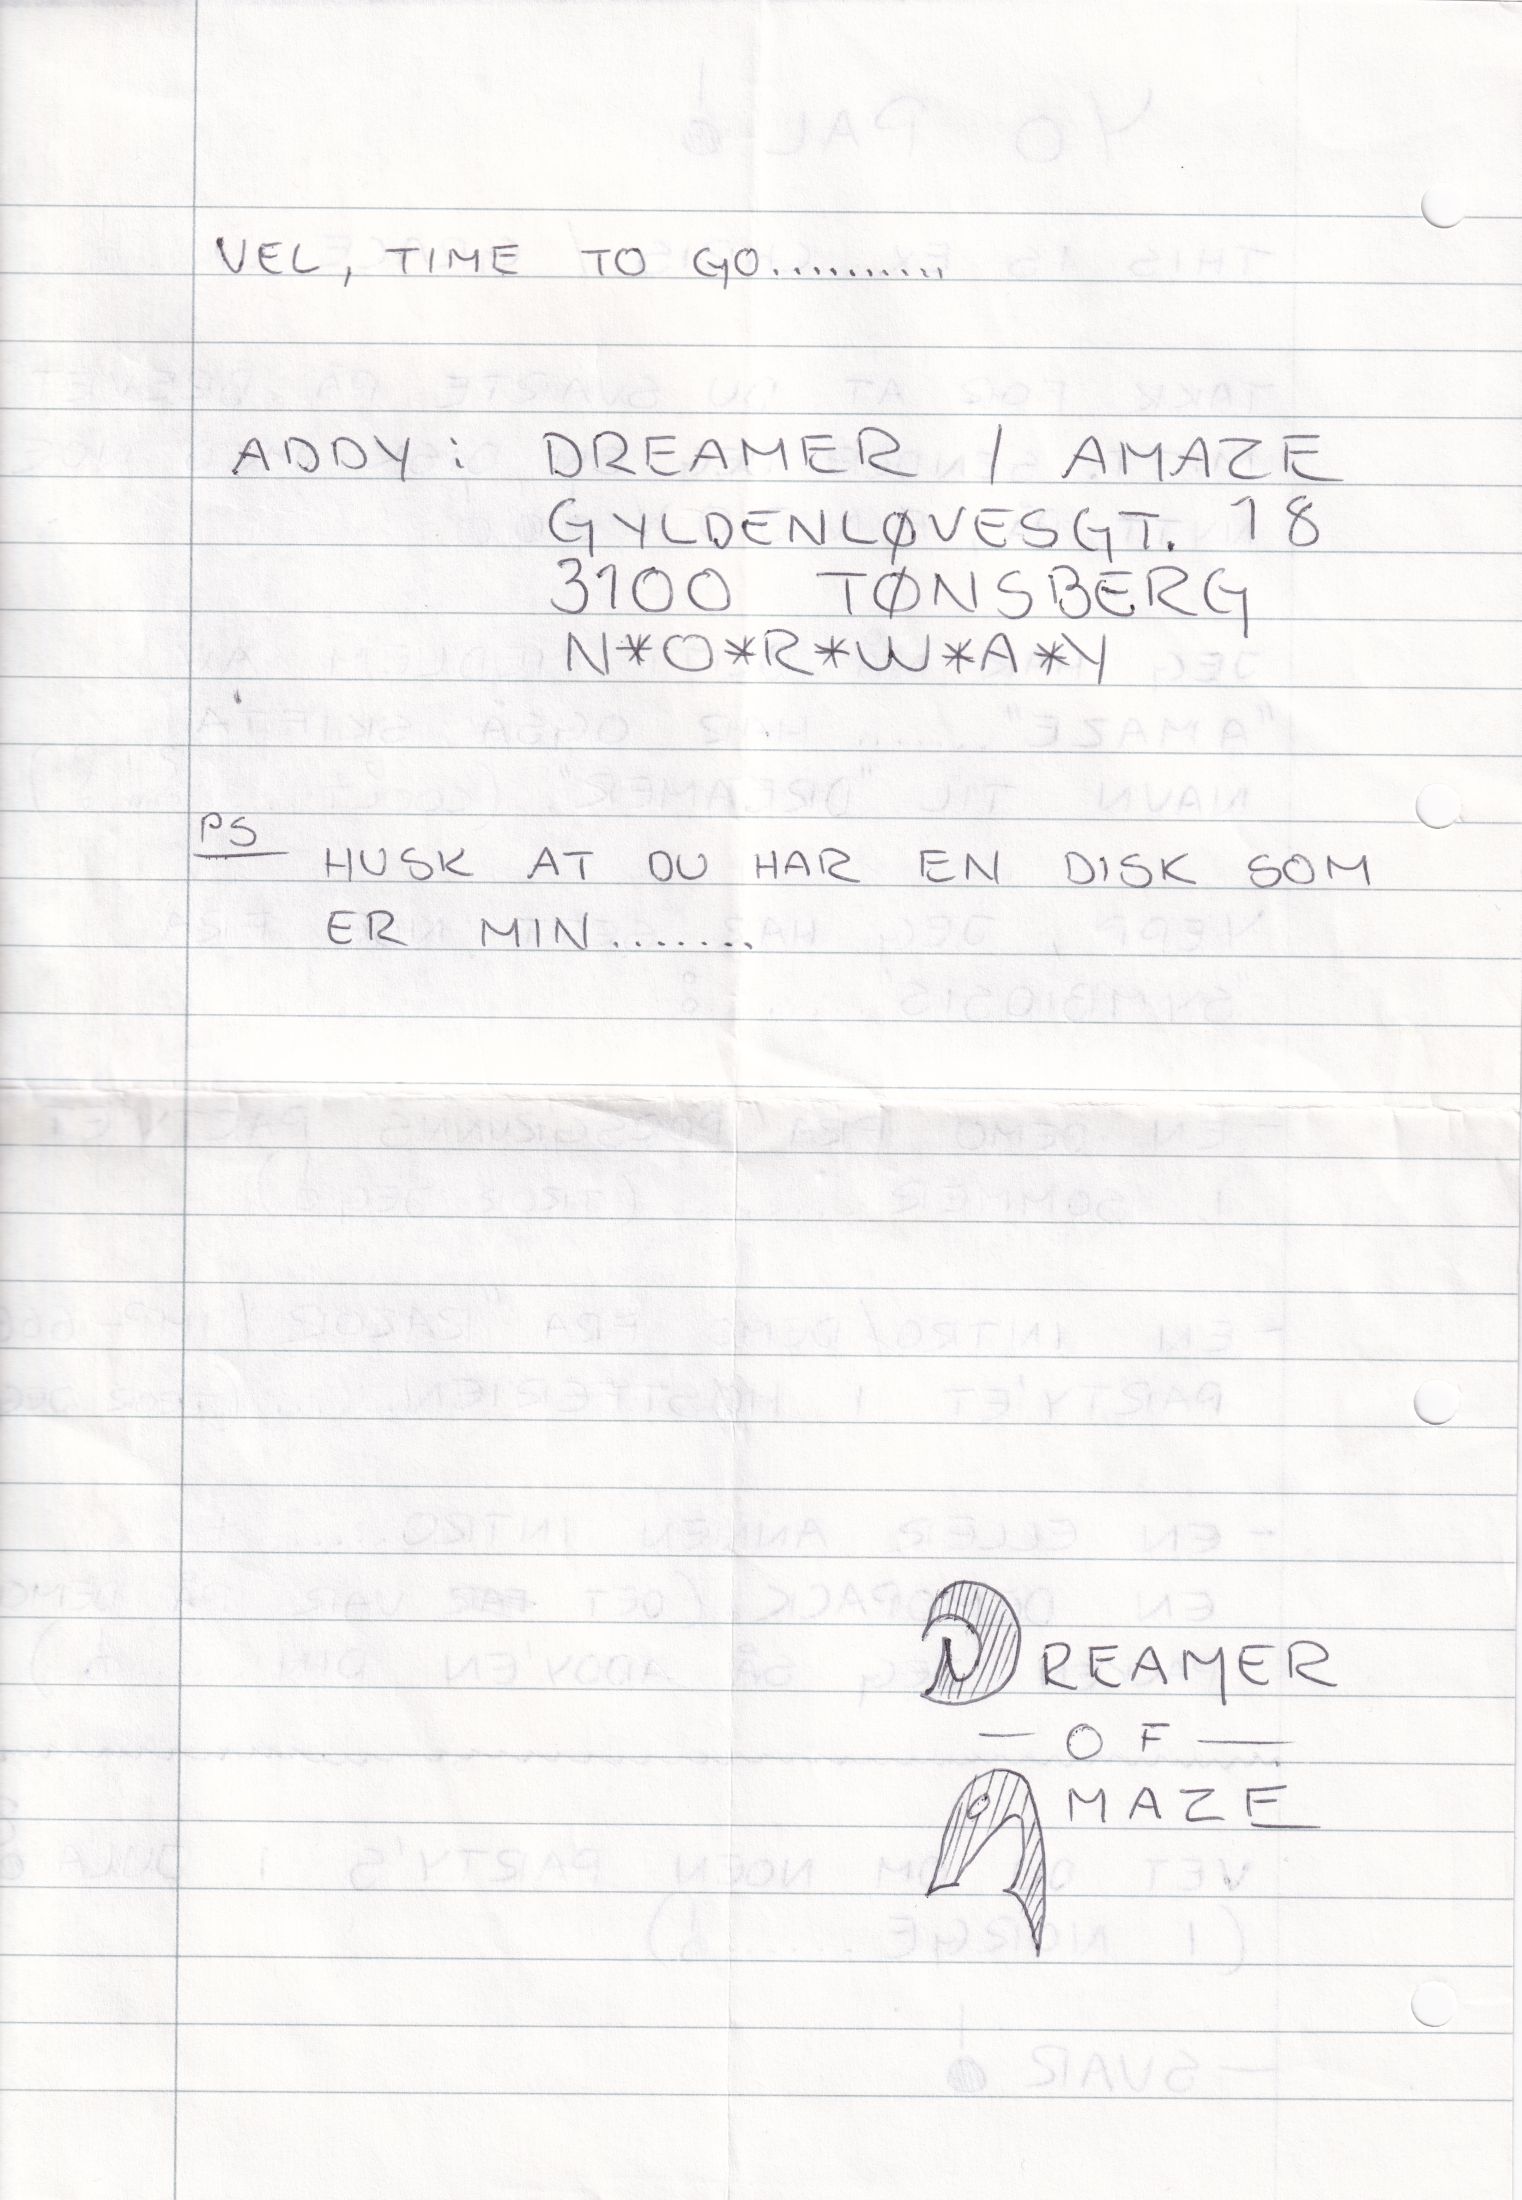 VEL, TIME TO GO..........
ADDY: DREAMER / AMAZE
GYLDENLØVESGT. 18
3100 TØNSBERG
N*O*R*W*A*Y
PS
HUSK AT DU HAR EN DISK SOM
ER MIN.......
DREAMER
— OF —
AMAZE